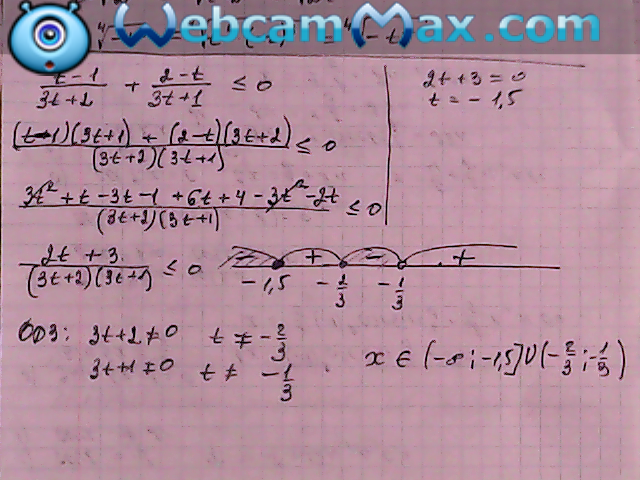 WebcamMax.com
(t-1)/(3t+2) + (2-t)/(3t+1) ≤ 0
2t+3=0
t = -1,5
((t-1)(3t+1) + (2-t)(3t+2))/((3t+2)(3t+1)) ≤ 0
(3t²+t-3t-1+6t+4-3t²-2t)/((3t+2)(3t+1)) ≤ 0
(2t+3)/((3t+2)(3t+1)) ≤ 0
- + - +
-1,5 -2/3 -1/3
ОДЗ: 3t+2≠0 t ≠ -2/3
3t+1≠0 t ≠ -1/3
x ∈ (-∞;-1,5]U(-2/3;-1/3)